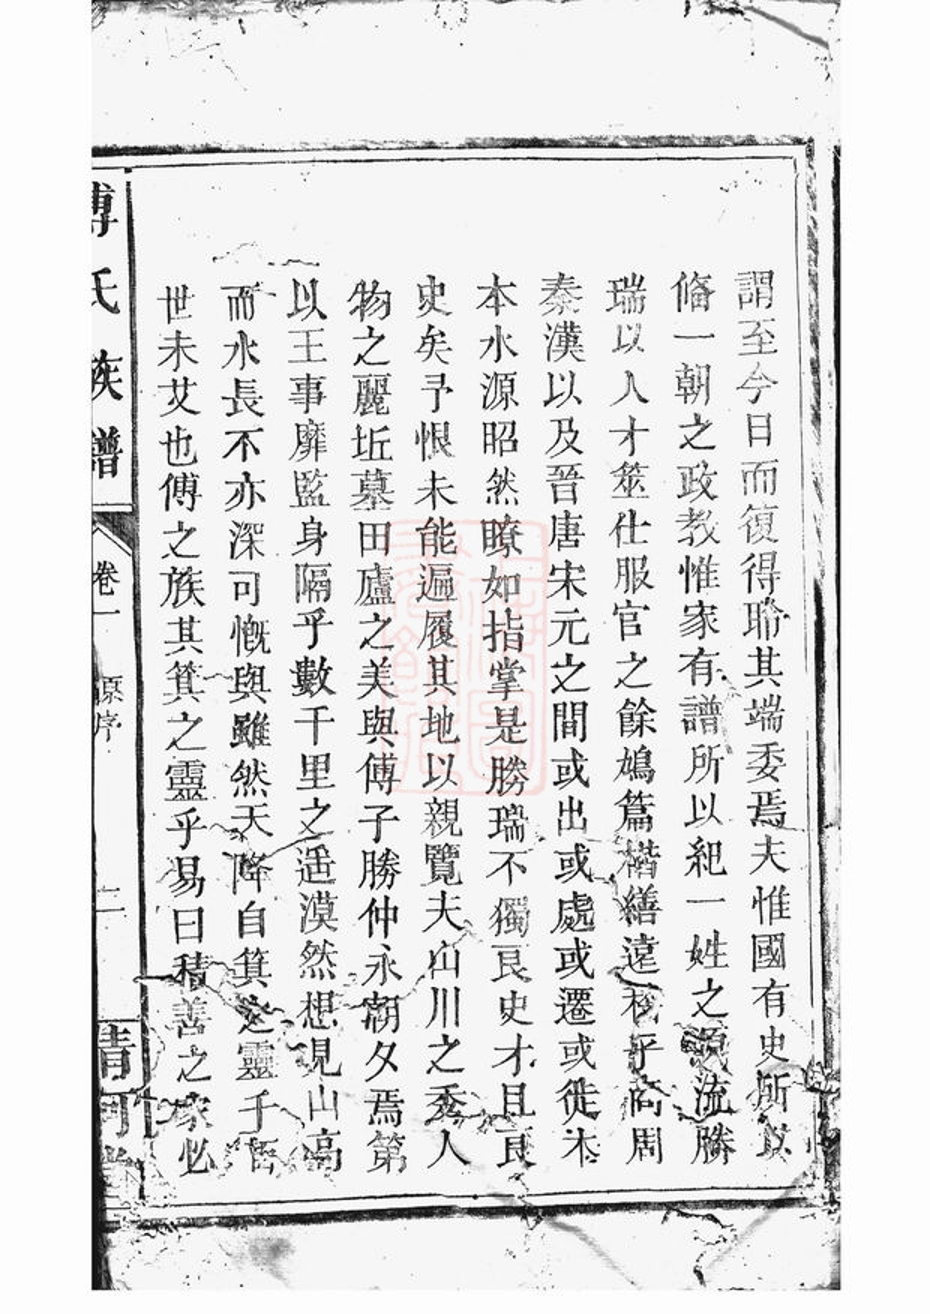 謂至今日而復得聆其端委焉夫惟國有史所以
偹一朝之政教惟家有譜所以紀一姓之源流勝
瑞以人才筮仕服官之餘鳩篇楷繕遠移乎商周
秦漢以及晉唐宋元之間或出或處或遷或徙木
本水源昭然瞭如指掌是勝瑞不獨良史才且良
史矣予恨未能遍履其地以親覽夫山川之秀人
物之麗坵墓田廬之美與傅子勝仲永朝夕焉第
以王事靡監身隔乎數千里之遥漠然想見山高
而水長不亦深可慨與雖然天降自箕之靈千
世未艾也傅之族其箕之靈乎易曰積善之家必
傅氏族譜
卷一
原序
二
清河堂